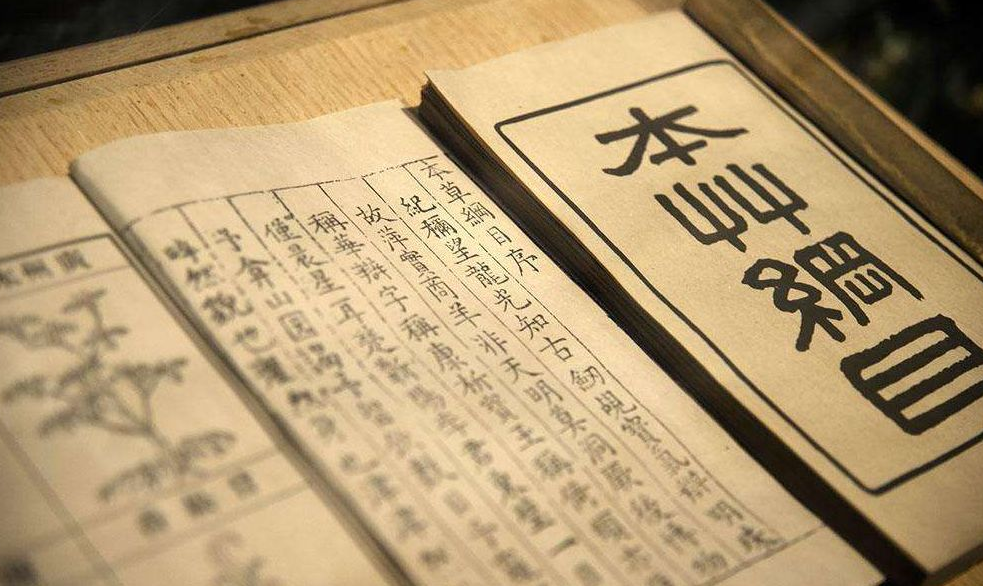 本艸綱目
本草綱目序
紀稱望龍光知古劍覘寶氣辨明珠
故萍實商羊非天明莫洞厥後博物
稱華辯字稱康析寶玉稱倚頓亦
僅晨星耳楚蘄陽李君東璧一
予弇山園謁予留飲數日予窺
晬然貌也癯然身也津津